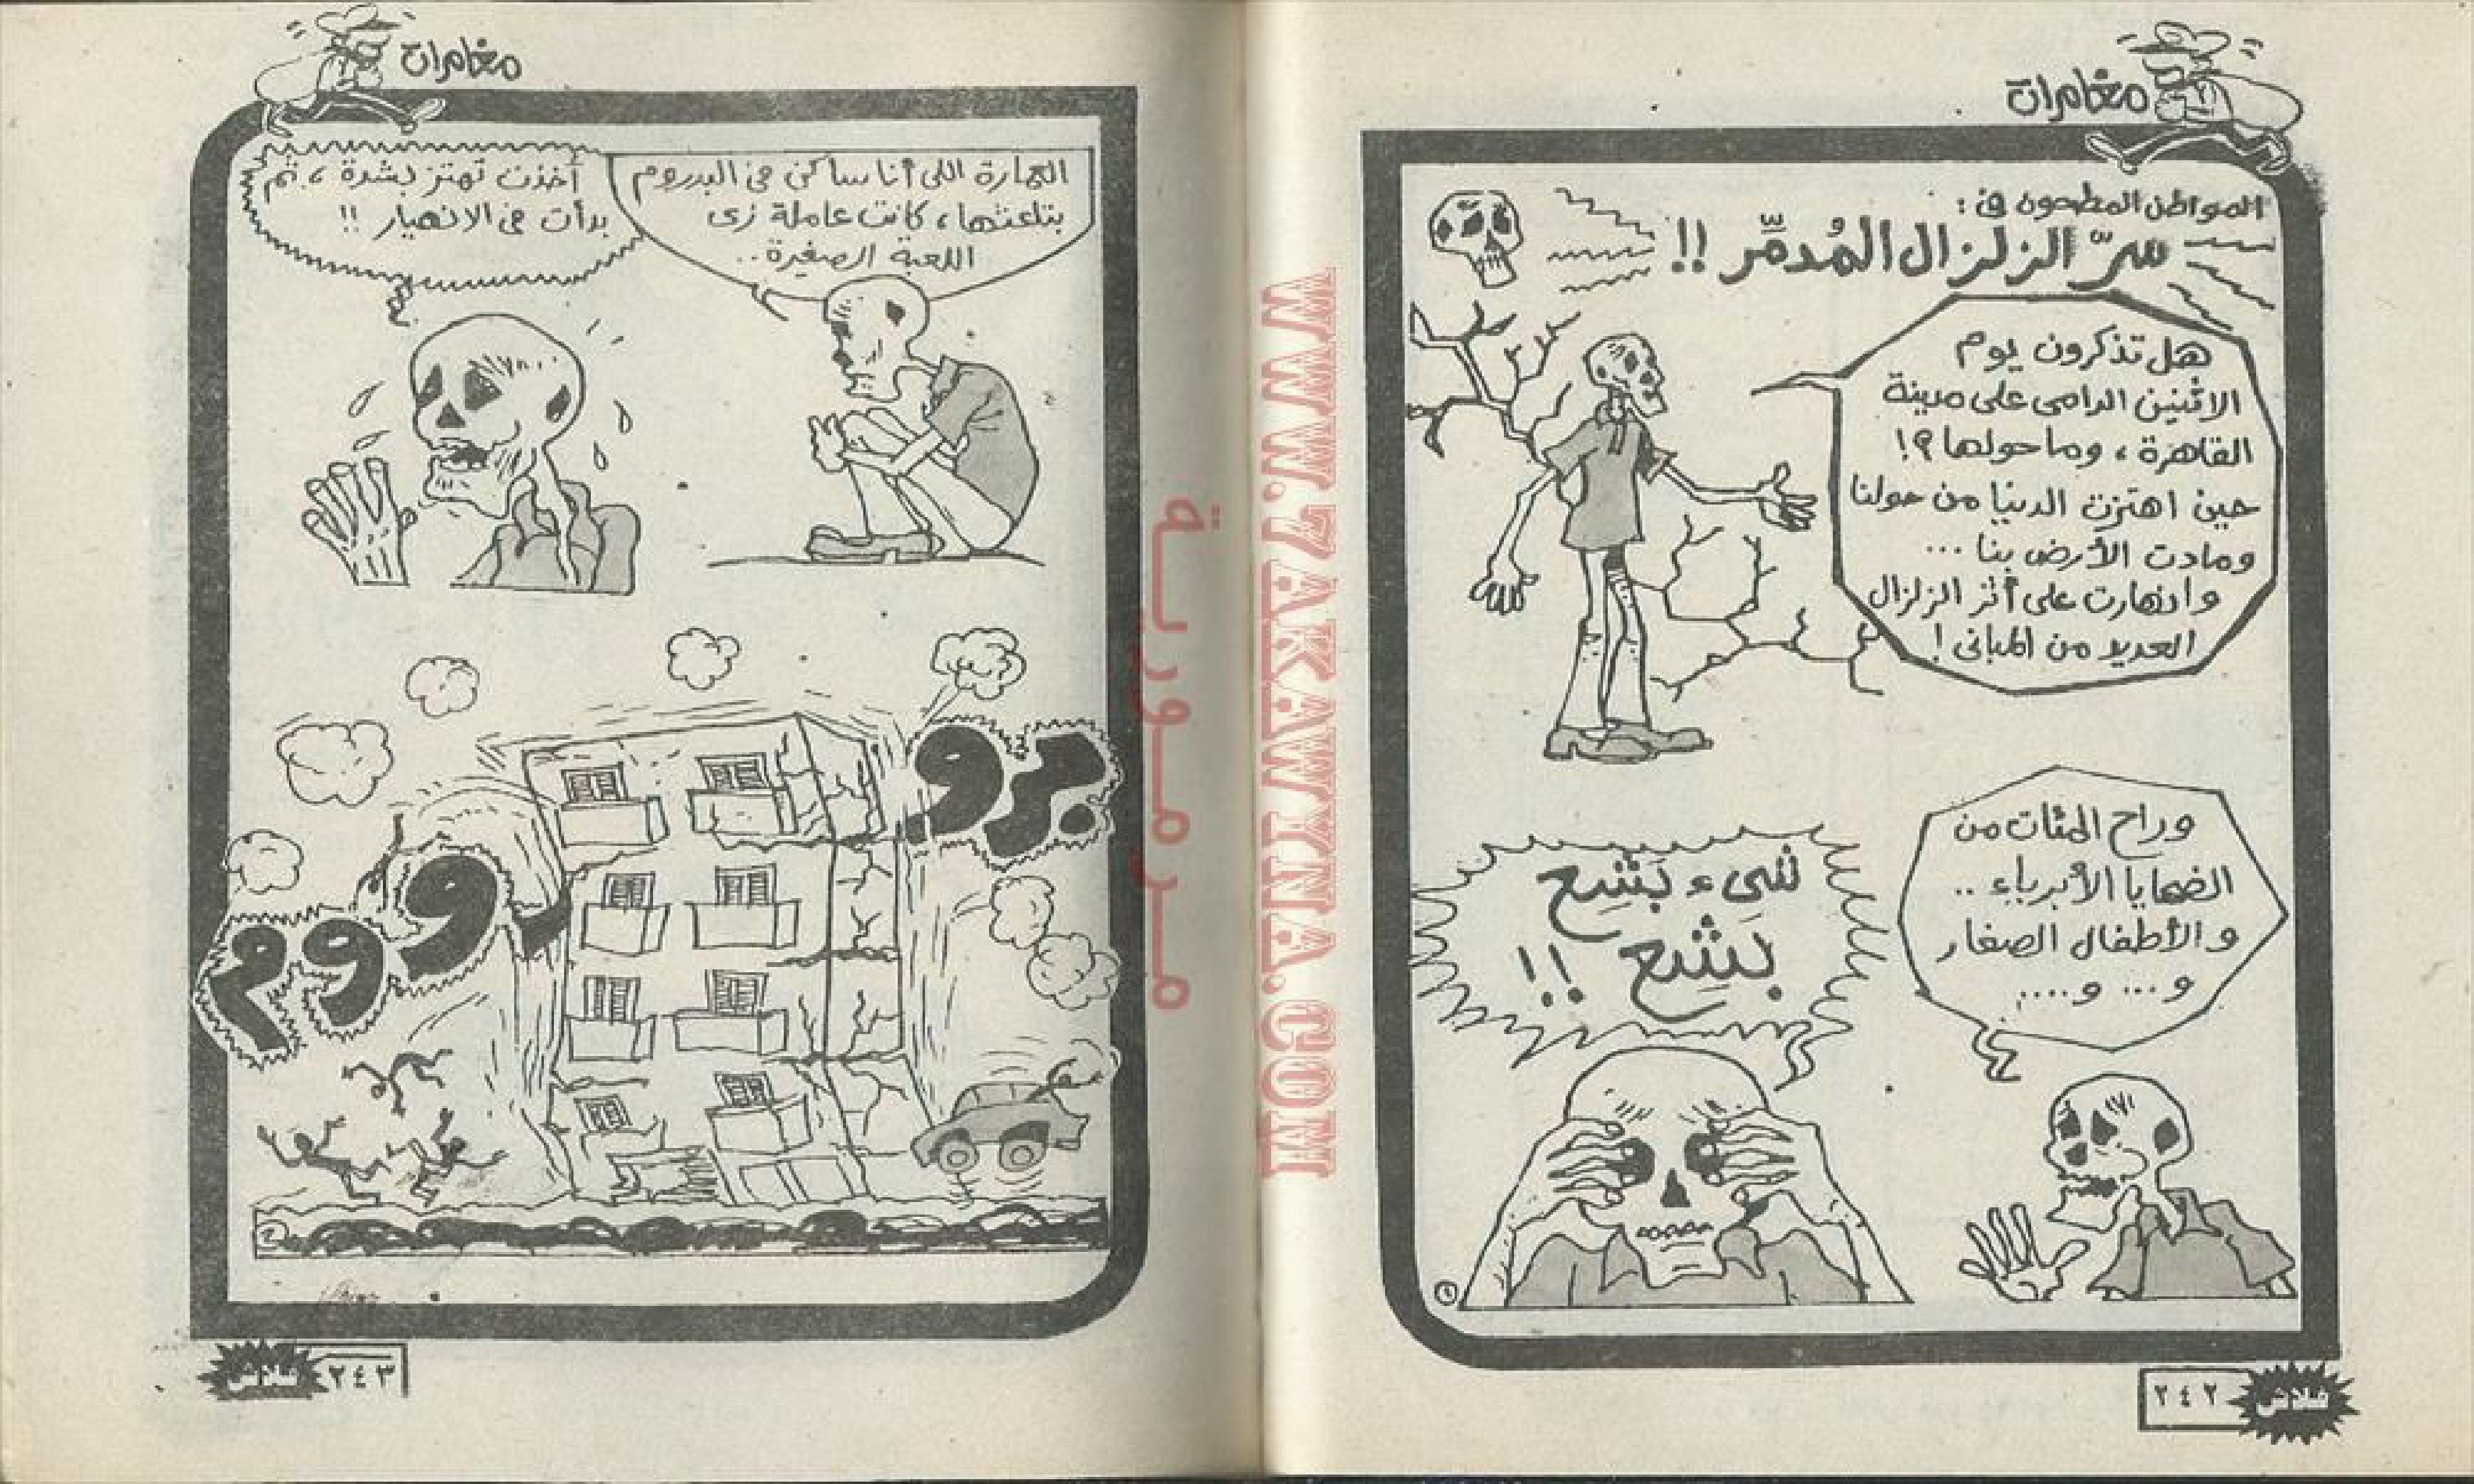 مغامرات
المواطن المطحون في:
سرّ الزلزال المُدمِّر !!
هل تذكرون يوم
الاثنين الدامى على مدينة
القاهرة ، وما حولها ؟!
حين اهتزت الدنيا من حولنا
ومادت الأرض بنا ...
وانهارت على أثر الزلزال
العديد من المبانى !
وراح المئات من
الضحايا الأبرياء ..
والأطفال الصغار
و ... و ....
شىء بَشِع
بَشِع !!
٢٤٢
فلاش
مغامرات
العمارة اللى أنا ساكن فى البدروم
بتاعتها ، كانت عاملة زى
اللعبة الصغيرة ..
أخذت تهتز بشدة ، ثم
بدأت فى الانهيار !!
بوووووم
٢٤٣
فلاش
WWW.7AKAWANA.COM
مرمورية